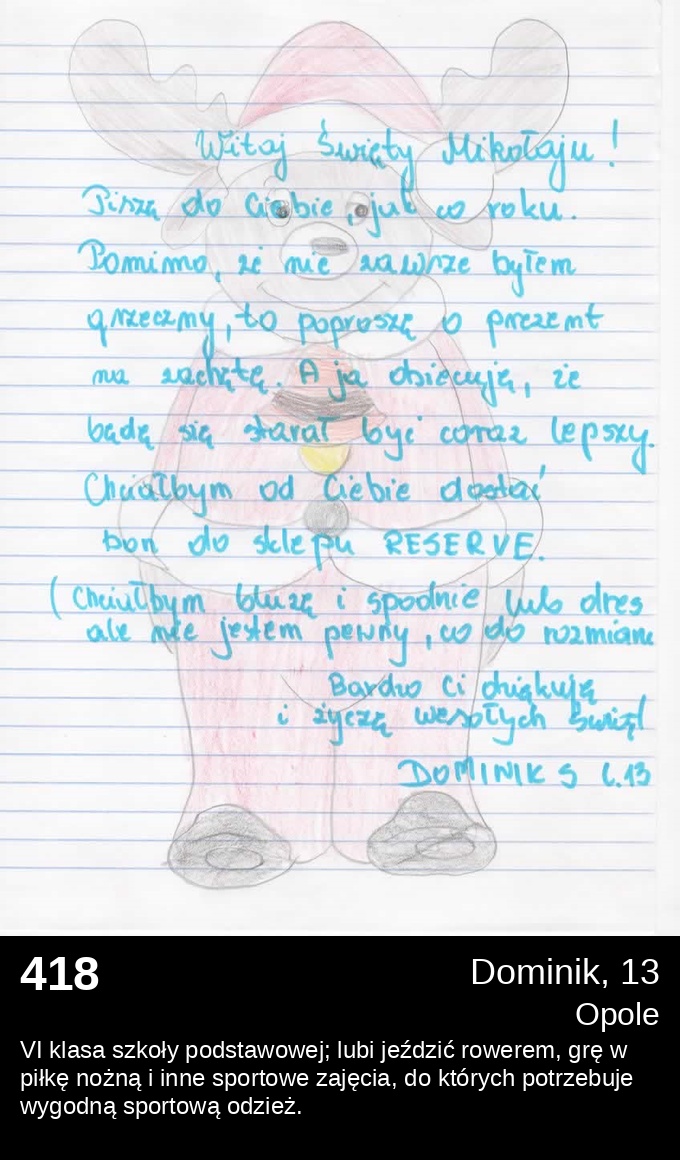 Witaj Święty Mikołaju!
Piszę do Ciebie, jak co roku.
Pomimo, że nie zawsze byłem
grzeczny, to poproszę o prezent
na zachętę. A ja obiecuję, że
będę się starał być coraz lepszy.
Chciałbym od Ciebie dostać
bon do sklepu RESERVE.
(Chciałbym bluzę i spodnie lub dres
ale nie jestem pewny, co do rozmiaru
Bardzo Ci dziękuję
i życzę wesołych Świąt!
DOMINIK S l.13
418
Dominik, 13
Opole
VI klasa szkoły podstawowej; lubi jeździć rowerem, grę w
piłkę nożną i inne sportowe zajęcia, do których potrzebuje
wygodną sportową odzież.